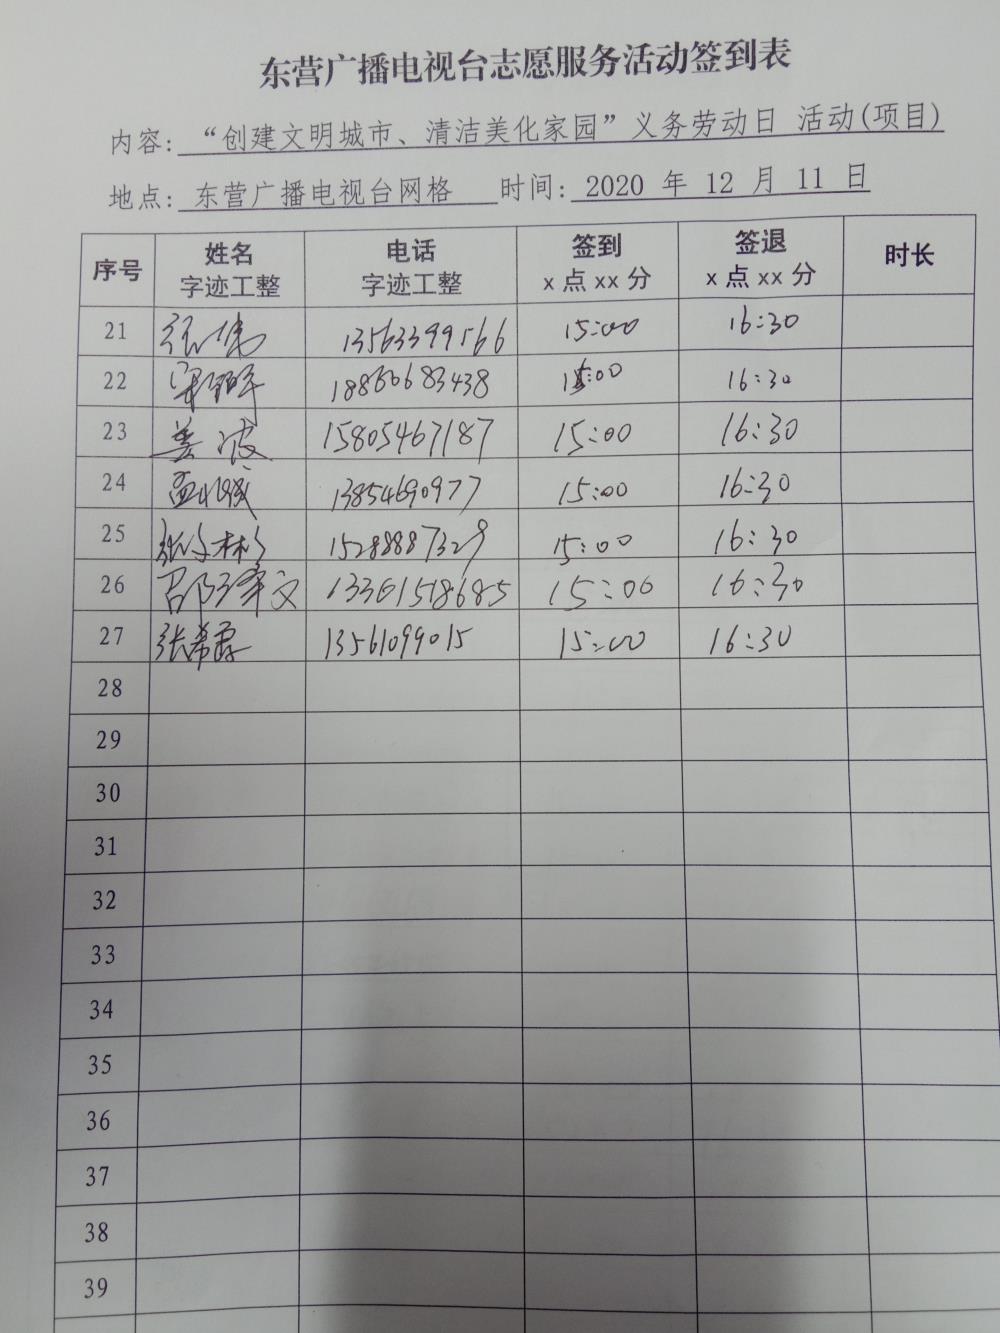 东营广播电视台志愿服务活动签到表
内容: “创建文明城市、清洁美化家园”义务劳动日 活动(项目)
地点: 东营广播电视台网格 时间: 2020 年 12 月 11 日
序号 姓名 电话 签到 签退 时长
字迹工整 字迹工整 x 点 xx 分 x 点 xx 分
21 张伟 13563399566 15:00 16:30
22 18860683438 15:00 16:30
23 姜波 15805467187 15:00 16:30
24 13854690977 15:00 16:30
25 15288887329 15:00 16:30
26 13361518685 15:00 16:30
27 张希霞 13561099015 15:00 16:30
28
29
30
31
32
33
34
35
36
37
38
39